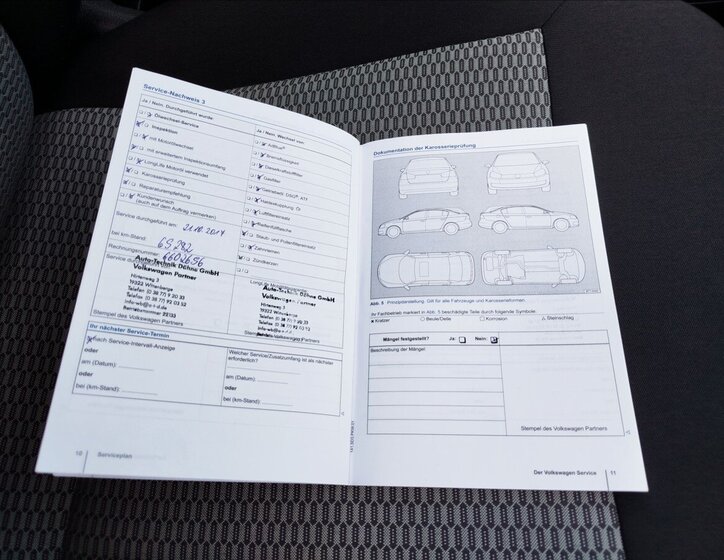 Service-Nachweis 3
Ja / Nein. Durchgeführt wurde:
Ölwechsel-Service
Inspektion
mit Motorölwechsel
mit erweitertem Inspektionsumfang
LongLife Motoröl verwendet
Karosserieprüfung
Reparaturempfehlung
Kundenwunsch
(auch auf dem Auftrag vermerken)
Service durchgeführt am:
bei km-Stand: 65 292
Rechnungsnummer: 4602656
Service durchgeführt
Auto-Technik Dühne GmbH
Volkswagen Partner
Hirtenweg 3
19322 Wittenberge
Telefon (0 38 77) 9 20 33
Telefax (0 38 77) 92 03 52
Stempel des Volkswagen Partners
Ja / Nein. Wechsel von:
AdBlue®
Bremsflüssigkeit
Dieselkraftstofffilter
Gasfilter
Getriebeöl: DSG®, ATF
Haldexkupplung, Öl
Luftfiltereinsatz
Reifenfüllflasche
Staub- und Pollenfiltereinsatz
Zahnriemen
Zündkerzen
Volkswagen Partner
Hirtenweg 3
19322 Wittenberge
Ihr nächster Service-Termin
nach Service-Intervall-Anzeige
oder
am (Datum):
oder
bei (km-Stand):
Welcher Service/Zusatzumfang ist als nächster
erforderlich?
am (Datum):
oder
bei (km-Stand):
10 Serviceplan
Dokumentation der Karosserieprüfung
Abb. 5 Prinzipdarstellung: Gilt für alle Fahrzeuge und Karosserieformen.
Ihr Fachbetrieb markiert in Abb. 5 beschädigte Teile durch folgende Symbole:
x Kratzer ○ Beule/Delle □ Korrosion △ Steinschlag
Mängel festgestellt? Ja: Nein:
Beschreibung der Mängel:
Stempel des Volkswagen Partners
Der Volkswagen Service 11